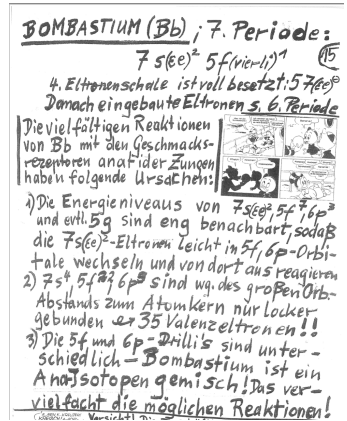 BOMBASTIUM (Bb) ; 7. Periode:
7 s(Ee)² 5f(vierli)¹
15
4. Eltronenschale ist voll besetzt: 5
Danach eingebaute Eltronen s. 6. Periode
Die vielfältigen Reaktionen
von Bb mit den Geschmacks-
rezeptoren anatider Zungen
haben folgende Ursachen:
1) Die Energieniveaus von 7s(Ee)², 5f⁷, 6p³
und evtl. 5g sind eng benachbart, sodaß
die 7s(Ee)²-Eltronen leicht in 5f, 6p-Orbi-
tale wechseln und von dort aus reagieren
2) 7s⁴, 5f, 6p sind wg. des großen Orb-
Abstands zum Atomkern nur locker
gebunden 35 Valenzeltronen!!
3) Die 5f und 6p-Drilli's sind unter-
schiedlich - Bombastium ist ein
Anatisotopengemisch! Das ver-
vielfacht die möglichen Reaktionen!